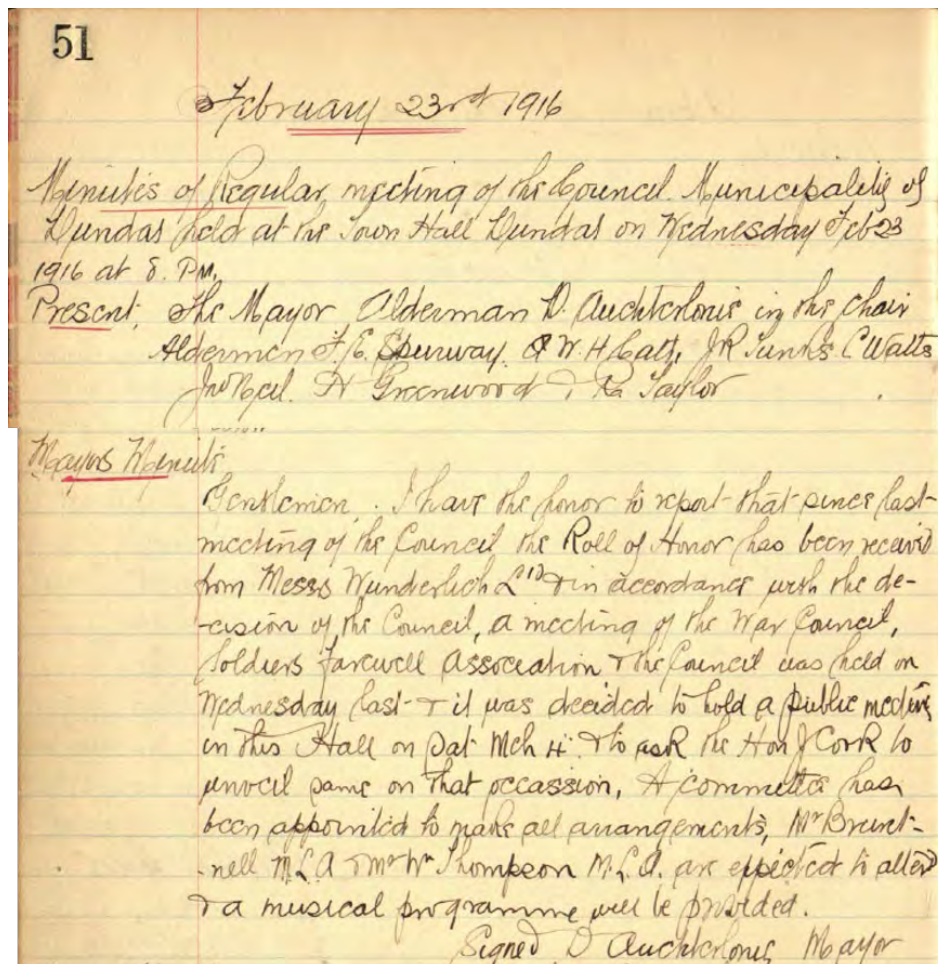 51
February 23rd 1916
Minutes of Regular meeting of the Council Municipality of
Dundas held at the Town Hall Dundas on Wednesday Feb 23
1916 at 8. PM.
Present. The Mayor Alderman D. Auchterlonie in the chair
Aldermen F. E. Spurway. W. H. Catt, J R Tunks C Watts
Jno Neil. H Greenwood & R Taylor
Mayors Minute
Gentlemen. I have the honor to report that since last
meeting of the Council the Roll of Honor has been received
from Messrs Wunderlich Ltd & in accordance with the de-
-cision of the Council, a meeting of the War Council,
Soldiers Farewell Association & the Council was held on
Wednesday last & it was decided to hold a public meeting
in this Hall on Sat Mch 4th & to ask the Hon J Cook to
unveil same on that occassion, A committee has
been appointed to make all arrangements, Mr Brunt-
-nell M.L.A & Mr Wm Thompson M.L.A. are expected to attend
& a musical programme will be provided.
Signed D Auchterlonie Mayor